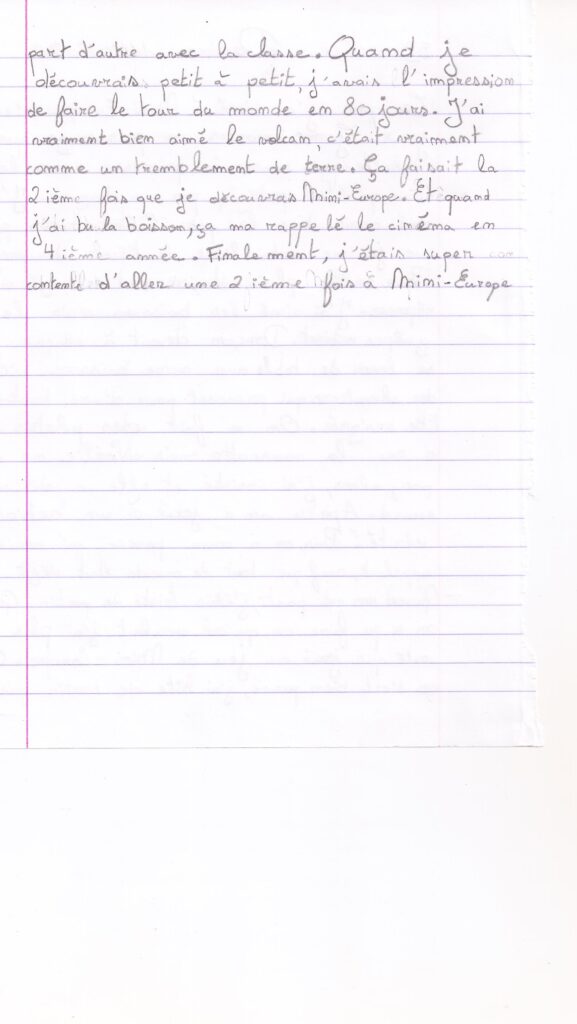 part d'autre avec la classe. Quand je
découvrais petit à petit, j'avais l'impression
de faire le tour du monde en 80 jours. J'ai
vraiment bien aimé le volcan, c'était vraiment
comme un tremblement de terre. Ça faisait la
2 ième fois que je découvras Mini-Europe. Et quand
j'ai bu la boisson, ça ma rappelé le cinéma en
4 ième année. Finalement, j'étais super
contente d'aller une 2 ième fois à Mini-Europe